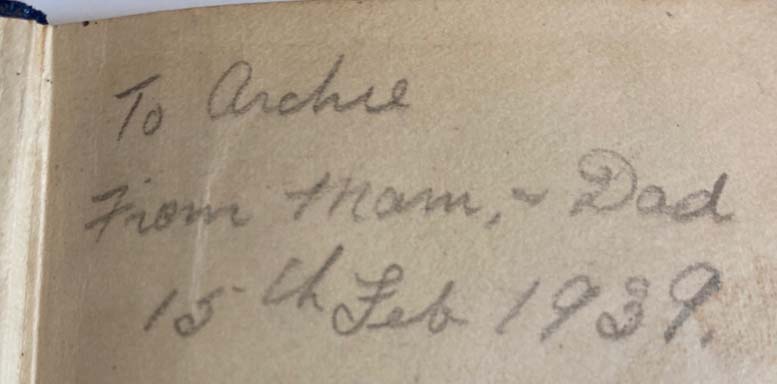 To Archie
From Mam, ~ Dad
15th Feb 1939.